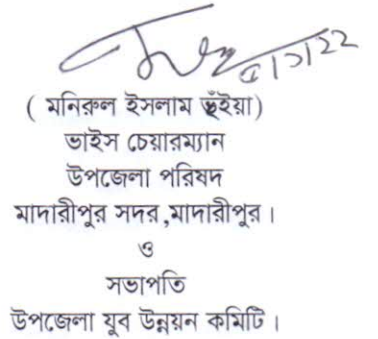 ৫/১/২২
( মনিরুল ইসলাম ভূঁইয়া)
ভাইস চেয়ারম্যান
উপজেলা পরিষদ
মাদারীপুর সদর ,মাদারীপুর ।
ও
সভাপতি
উপজেলা যুব উন্নয়ন কমিটি ।